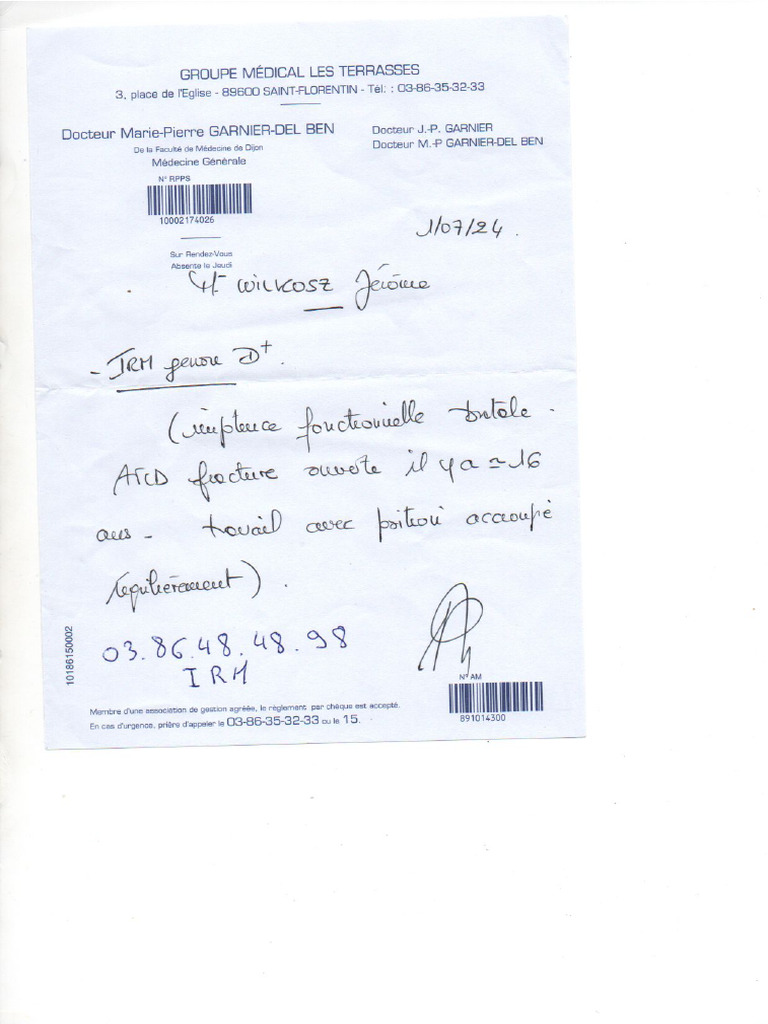 GROUPE MÉDICAL LES TERRASSES
3, place de l'Eglise - 89600 SAINT-FLORENTIN - Tél. : 03-86-35-32-33
Docteur Marie-Pierre GARNIER-DEL BEN
De la Faculté de Médecine de Dijon
Médecine Générale
N° RPPS
10002174026
Sur Rendez-Vous
Absente le Jeudi
Docteur J.-P. GARNIER
Docteur M.-P GARNIER-DEL BEN
1/07/24.
Mr WILKOSZ Jérôme
- IRM genou D+.
(impotence fonctionnelle totale.
ATCD fracture ouverte il y a ≃ 16
ans - travail avec position accroupie
régulièrement).
03.86.48.48.98
IRM
10186150002
N° AM
891014300
Membre d'une association de gestion agréée, le règlement par chèque est accepté.
En cas d'urgence, prière d'appeler le 03-86-35-32-33 ou le 15.